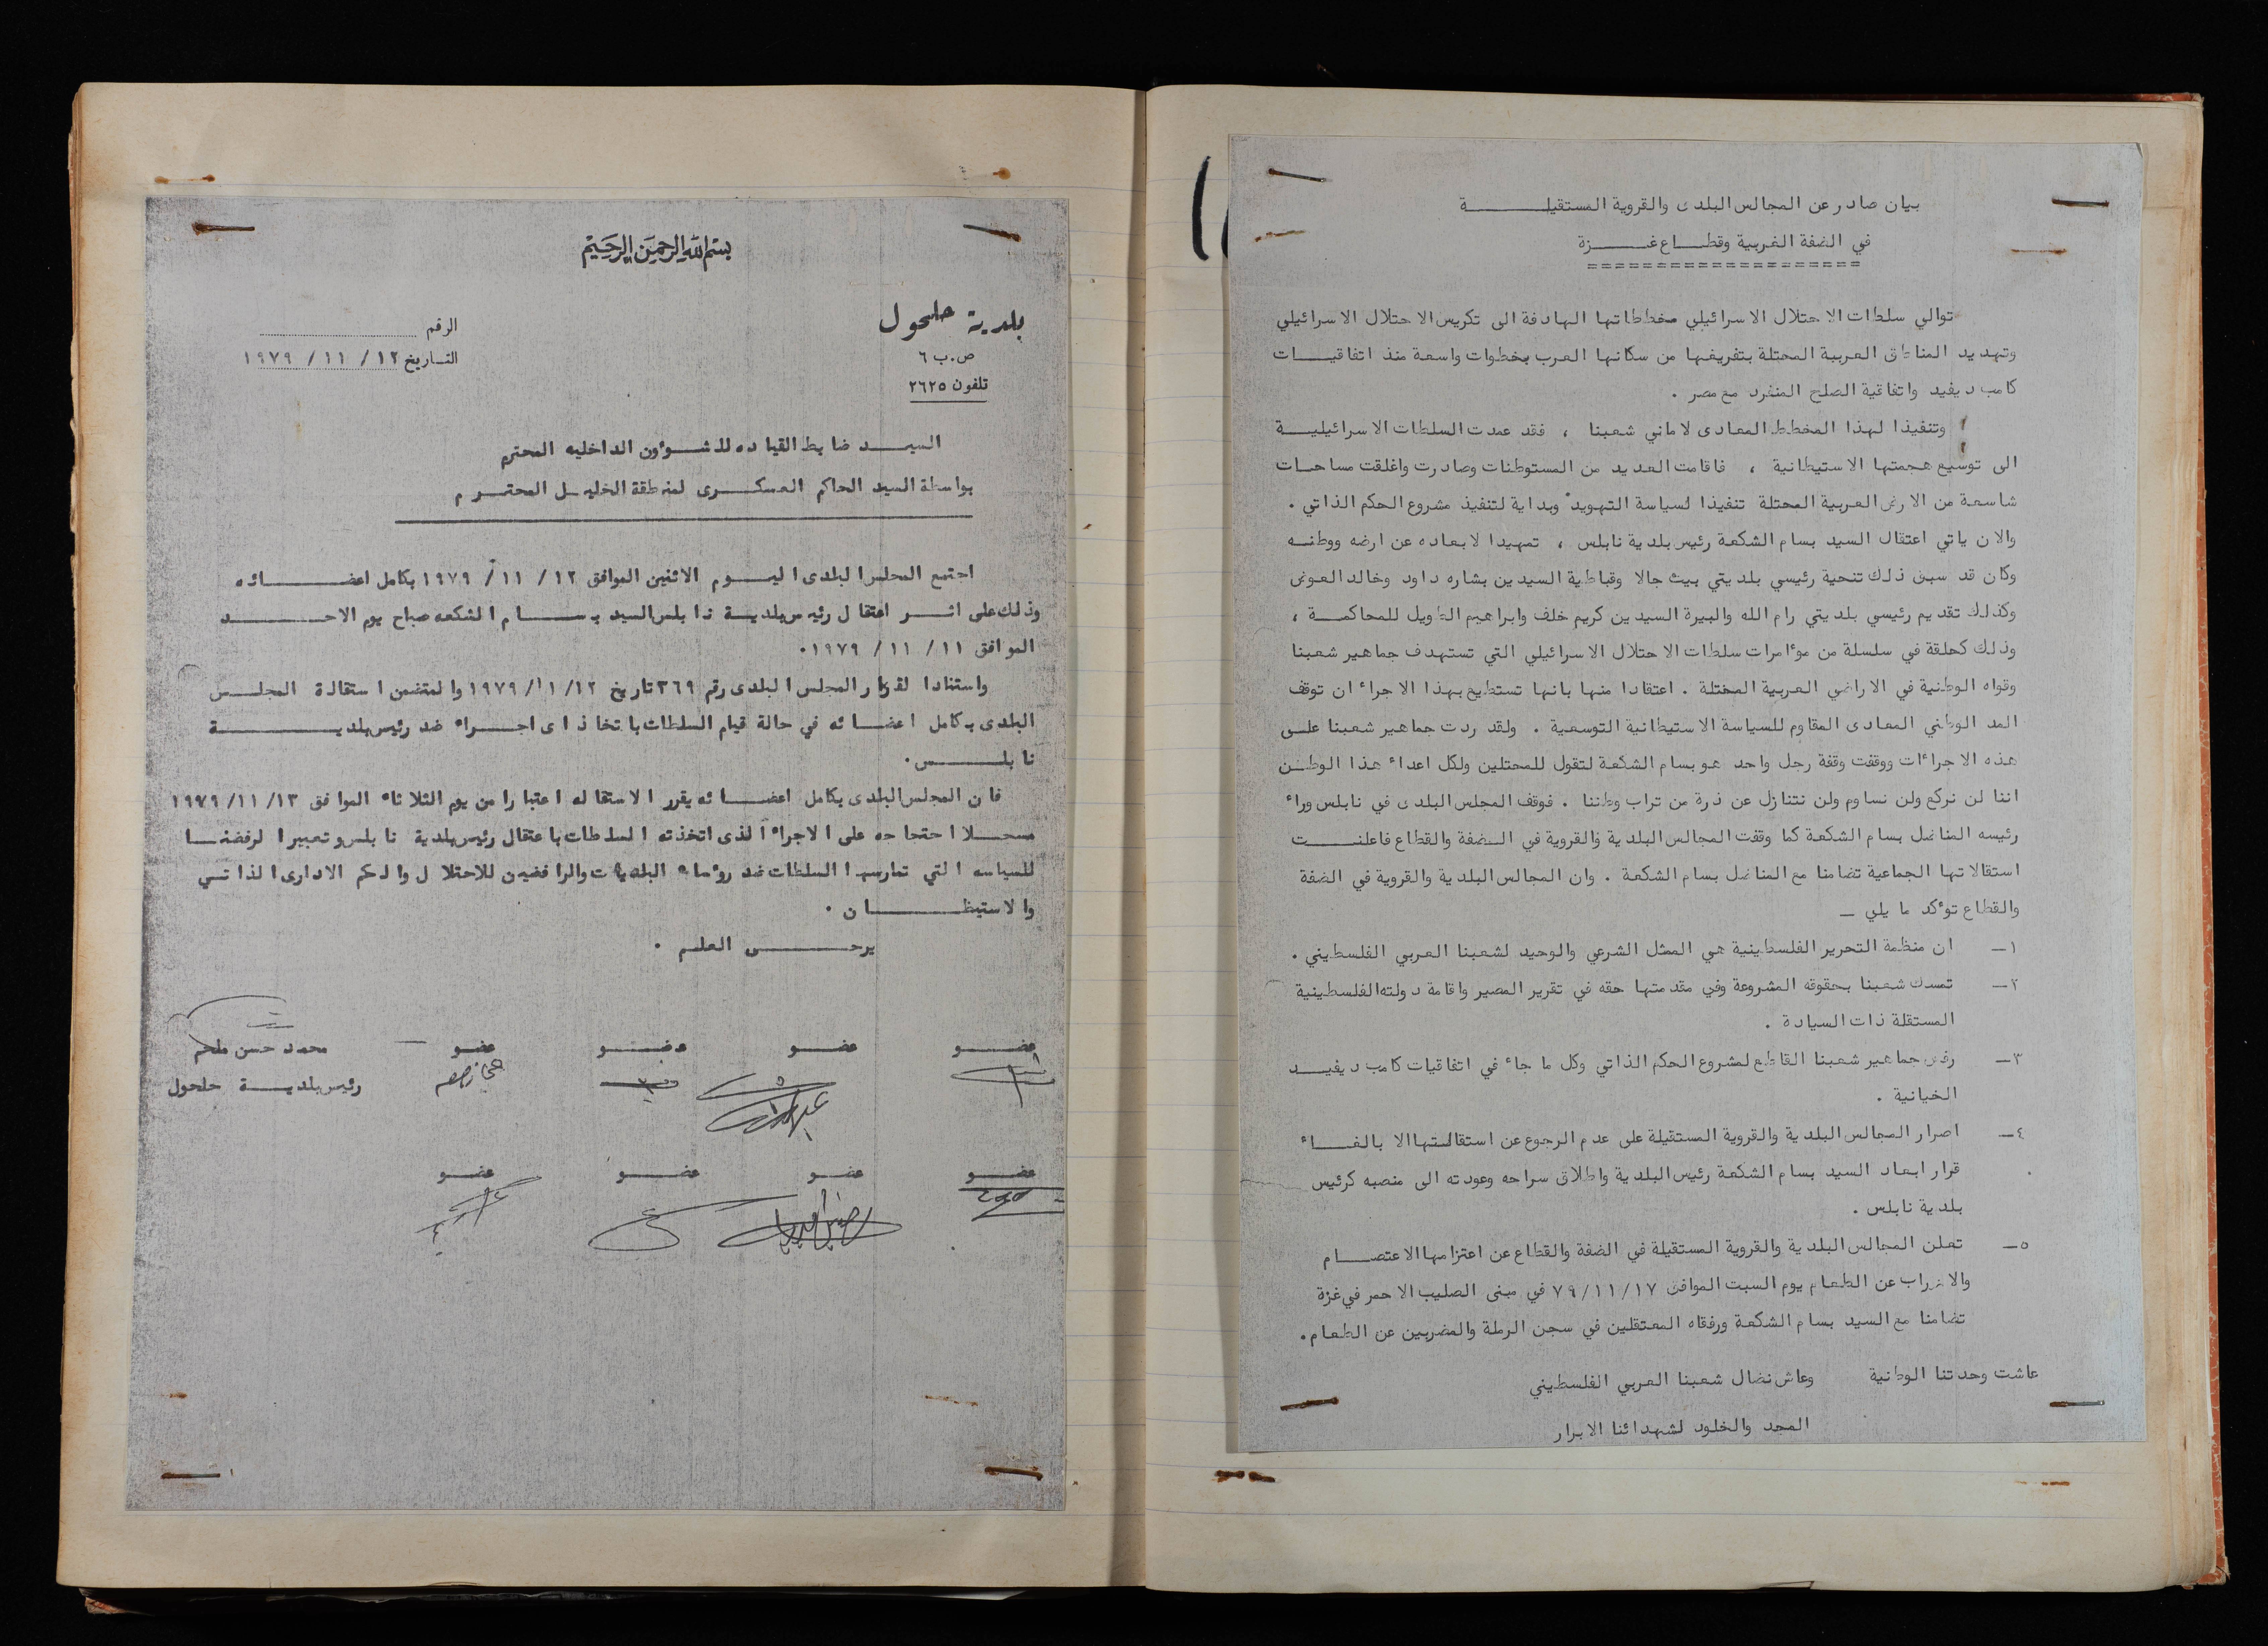 بيان صادر عن المجالس البلدى والقروية المستقيلة
في الضفة الغربية وقطاع غزة
====================
توالي سلطات الاحتلال الاسرائيلي مخططاتها الهادفة الى تكريس الاحتلال الاسرائيلي
وتهديد المناطق العربية المحتلة بتفريغها من سكانها العرب بخطوات واسعة منذ اتفاقيات
كامب ديفيد واتفاقية الصلح المنفرد مع مصر .
وتنفيذا لهذا المخطط المعادى لاماني شعبنا ، فقد عمدت السلطات الاسرائيلية
الى توسيع هجمتها الاستيطانية ، فاقامت العديد من المستوطنات وصادرت واغلقت مساحات
شاسعة من الارض العربية المحتلة تنفيذا لسياسة التهويد وبداية لتنفيذ مشروع الحكم الذاتي .
والان ياتي اعتقال السيد بسام الشكعة رئيس بلدية نابلس ، تمهيدا لابعاده عن ارضه ووطنه
وكان قد سبق ذلك تنحية رئيسي بلديتي بيت جالا وقباطية السيدين بشاره داود وخالد العوض
وكذلك تقديم رئيسي بلديتي رام الله والبيرة السيدين كريم خلف وابراهيم الطويل للمحاكمة ،
وذلك كحلقة في سلسلة من موءامرات سلطات الاحتلال الاسرائيلي التي تستهدف جماهير شعبنا
وقواه الوطنية في الاراضي العربية المحتلة . اعتقادا منها بانها تستطيع بهذا الاجراء ان توقف
المد الوطني المعادى المقاوم للسياسة الاستيطانية التوسعية . ولقد ردت جماهير شعبنا على
هذه الاجراءات ووقفت وقفة رجل واحد هو بسام الشكعة لتقول للمحتلين ولكل اعداء هذا الوطن
اننا لن نركع ولن نساوم ولن نتنازل عن ذرة من تراب وطننا . فوقف المجلس البلدى في نابلس وراء
رئيسه المناضل بسام الشكعة كما وقفت المجالس البلدية والقروية في الضفة والقطاع فاعلنت
استقالاتها الجماعية تضامنا مع المناضل بسام الشكعة . وان المجالس البلدية والقروية في الضفة
والقطاع توءكد ما يلي –
١– ان منظمة التحرير الفلسطينية هي الممثل الشرعي والوحيد لشعبنا العربي الفلسطيني .
٢– تمسك شعبنا بحقوقه المشروعة وفي مقدمتها حقه في تقرير المصير واقامة دولته الفلسطينية
المستقلة ذات السيادة .
٣– رفض جماهير شعبنا القاطع لمشروع الحكم الذاتي وكل ما جاء في اتفاقيات كامب ديفيد
الخيانية .
٤– اصرار المجالس البلدية والقروية المستقيلة على عدم الرجوع عن استقالتها الا بالغاء
قرار ابعاد السيد بسام الشكعة رئيس البلدية واطلاق سراحه وعودته الى منصبه كرئيس
بلدية نابلس .
٥– تعلن المجالس البلدية والقروية المستقيلة في الضفة والقطاع عن اعتزامها الاعتصام
والاضراب عن الطعام يوم السبت الموافق ٧٩/١١/١٧ في مبنى الصليب الاحمر في غزة
تضامنا مع السيد بسام الشكعة ورفقاه المعتقلين في سجن الرملة والمضربين عن الطعام .
عاشت وحدتنا الوطنية وعاش نضال شعبنا العربي الفلسطيني
المجد والخلود لشهدائنا الابرار
بسم الله الرحمن الرحيم
بلدية حلحول
ص.ب ٦
تلفون ٢٦٢٥
الرقم
التاريخ ١٢/ ١١ / ١٩٧٩
السيد ضابط القياده للشوءون الداخليه المحترم
بواسطة السيد الحاكم العسكرى لمنطقة الخليل المحترم
اجتمع المجلس البلدى اليوم الاثنين الموافق ١٢/ ١١ / ١٩٧٩ بكامل اعضائه
وذلك على اثر اعتقال رئيس بلدية نابلس السيد بسام الشكعه صباح يوم الاحد
الموافق ١١/ ١١ / ١٩٧٩ .
واستنادا لقرار المجلس البلدى رقم ٣٦٩ تاريخ ١٢/ ١١ /١٩٧٩ والمتضمن استقالة المجلس
البلدى بكامل اعضائه في حالة قيام السلطات باتخاذ اى اجراء ضد رئيس بلدية
نابلس .
فان المجلس البلدى بكامل اعضائه يقرر الاستقاله اعتبارا من يوم الثلاثاء الموافق ١٩٧٩/١١/١٣
مسجلا احتجاجه على الاجراء الذى اتخذته السلطات باعتقال رئيس بلدية نابلس وتعبيرا لرفضنا
للسياسه التي تمارسها السلطات ضد روءساء البلديات والرافضين للاحتلال والحكم الادارى الذاتي
والاستيطان .
يرجى العلم .
عضو عضو عضو عضو محمد حسن ملحم
رئيس بلدية حلحول
عضو عضو عضو عضو